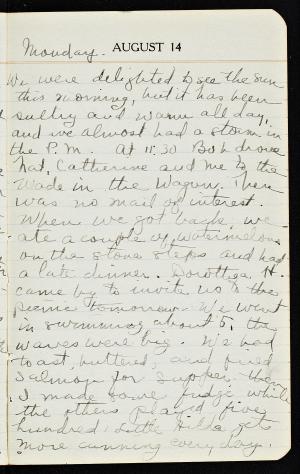 Monday. AUGUST 14
We were delighted to see the sun
this morning, but it has been
sultry and warm all day,
and we almost had a storm in
the P.M. At 11.30 Bob drove
Nat, Catherine and me to the
Wade in the Wagon. There
was no mail of interest.
When we got back, we
ate a couple of watermelons
on the stone steps and had
a late dinner. Dorothea H.
came by to invite us to the
picnic tomorrow. We went
in swimming about 5, the
waves were big. We had
toast, buttered, and fried
Salmon for supper. Then
I made some fudge while
the others played five
hundred. Little Hilda gets
more cunning every day.